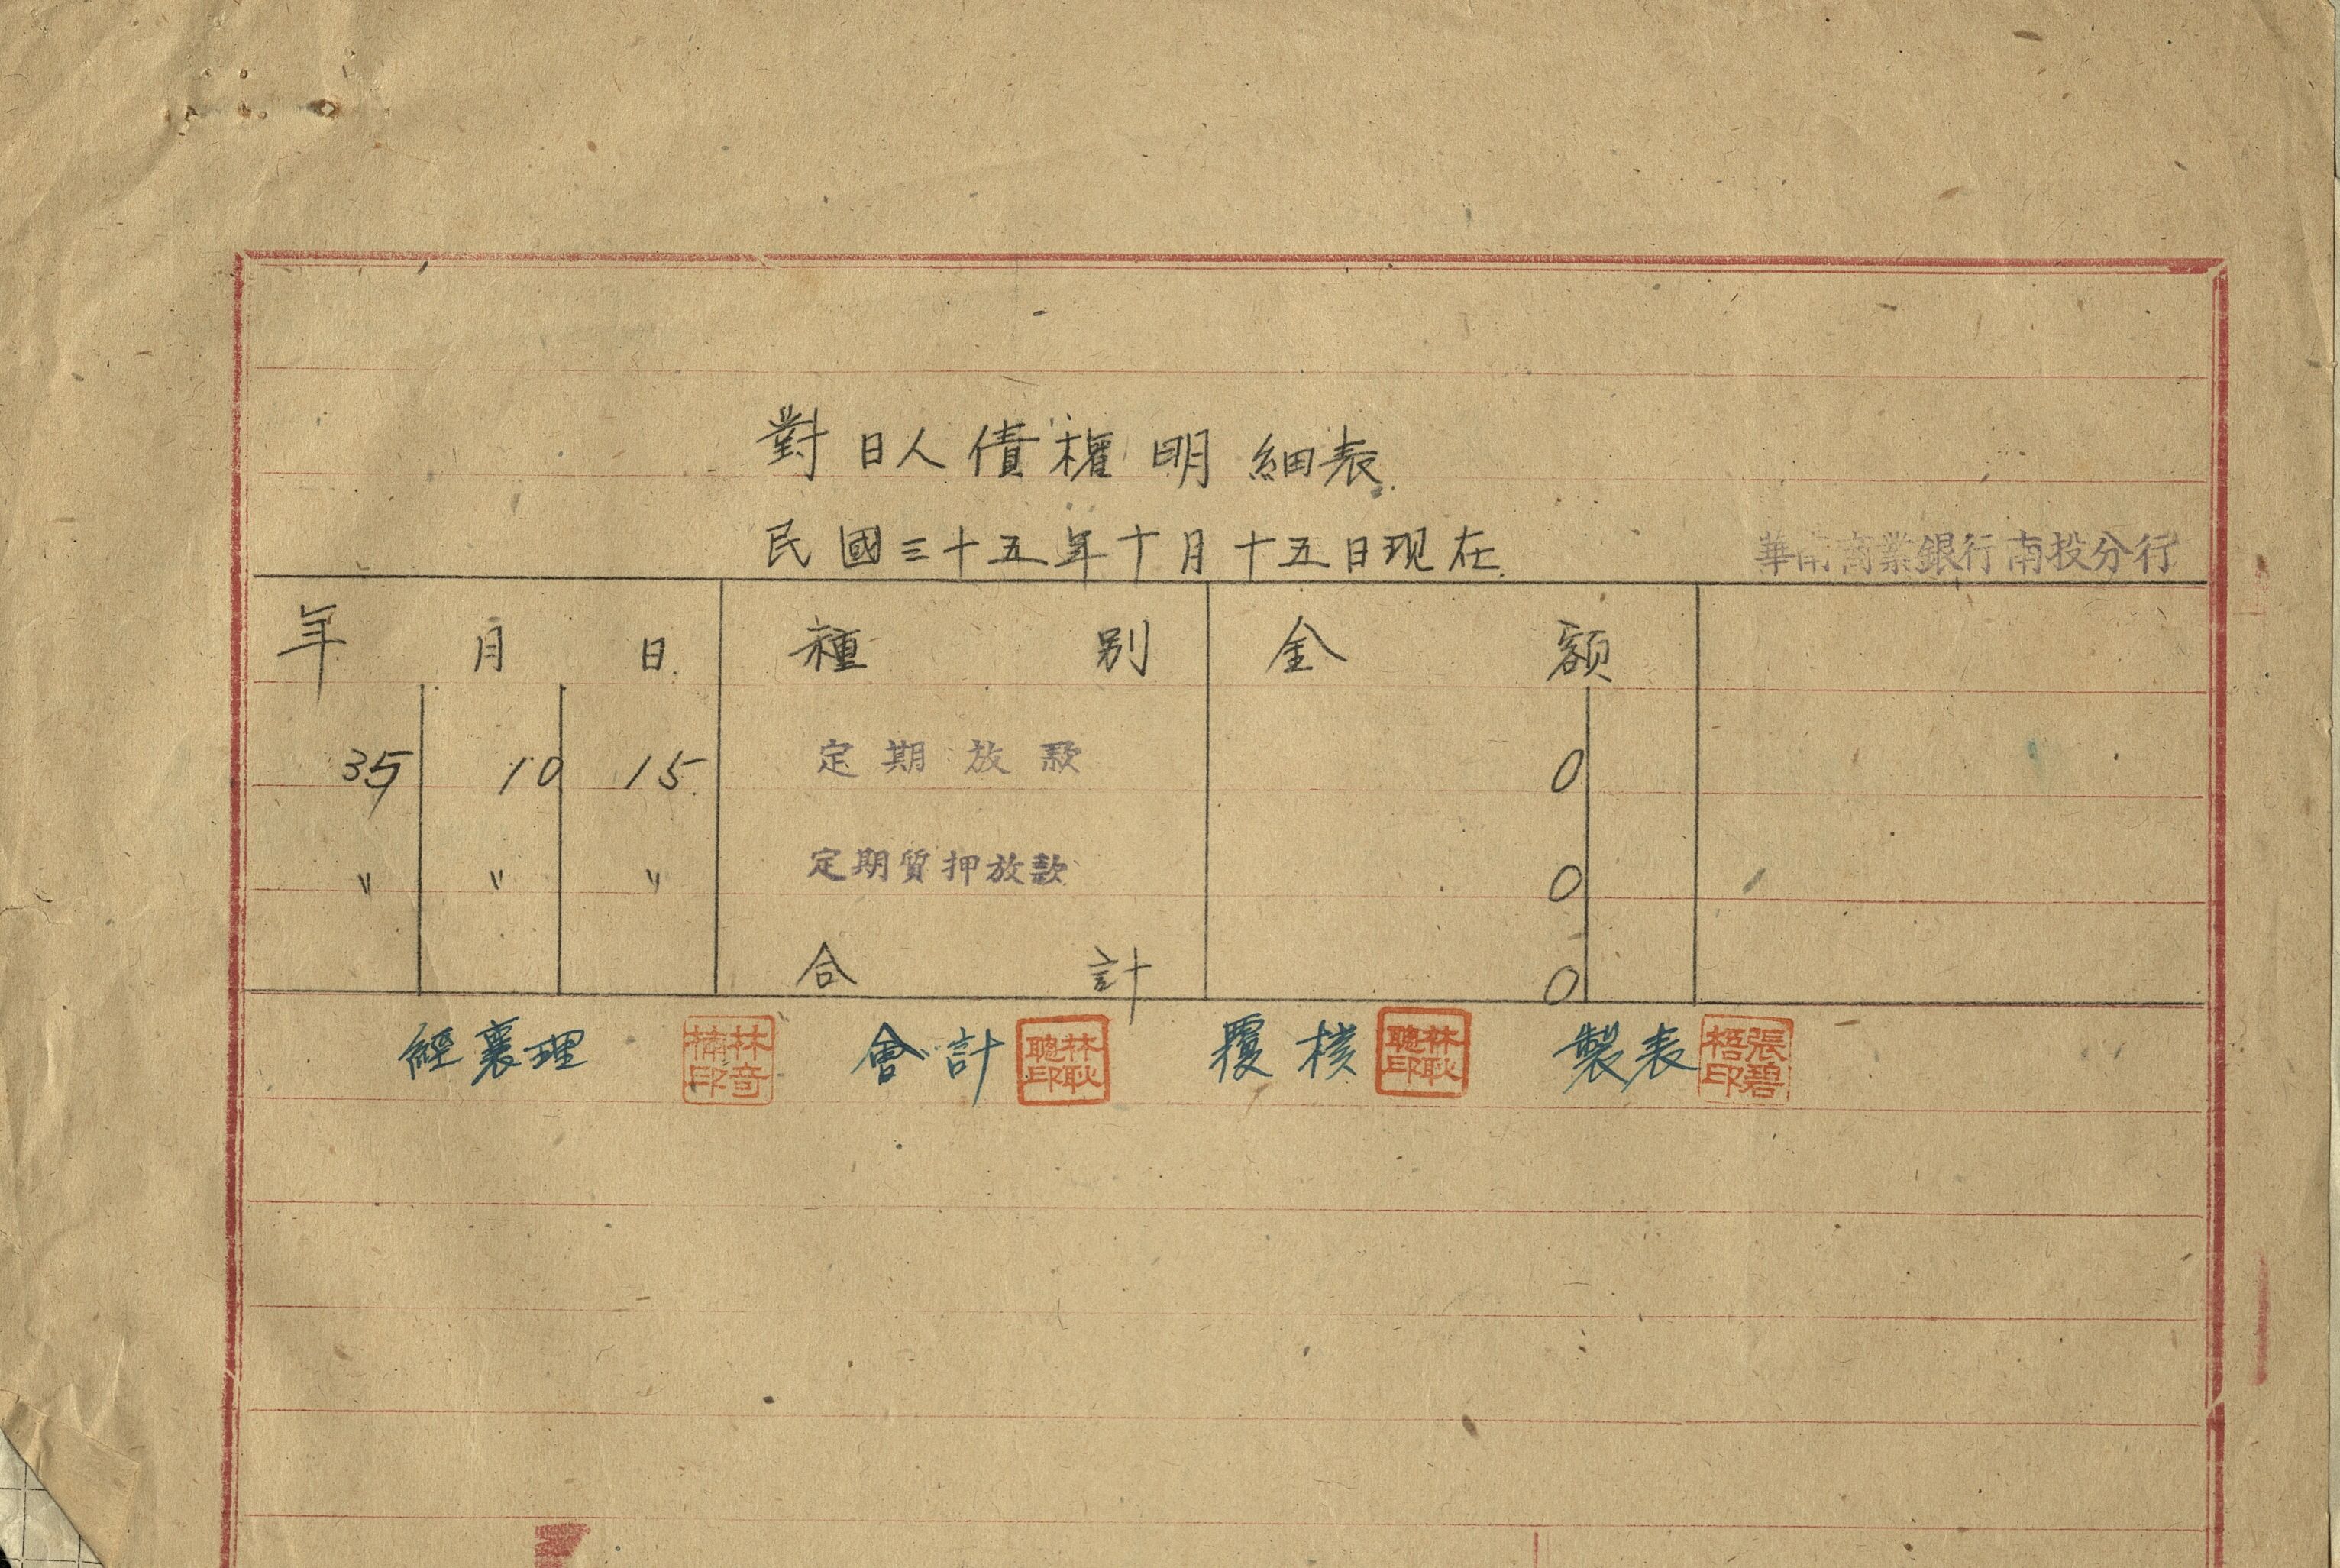 對日人債權明細表.
民國三十五年十月十五日現在.
華南商業銀行南投分行
年 月 日. 種別 金額
35 10 15. 定期放款 0
〃 〃 〃 定期質押放款 0
合計 0
經襄理 林奇楠印 會計 林耿聰印 覆核 林耿聰印 製表 張碧梧印